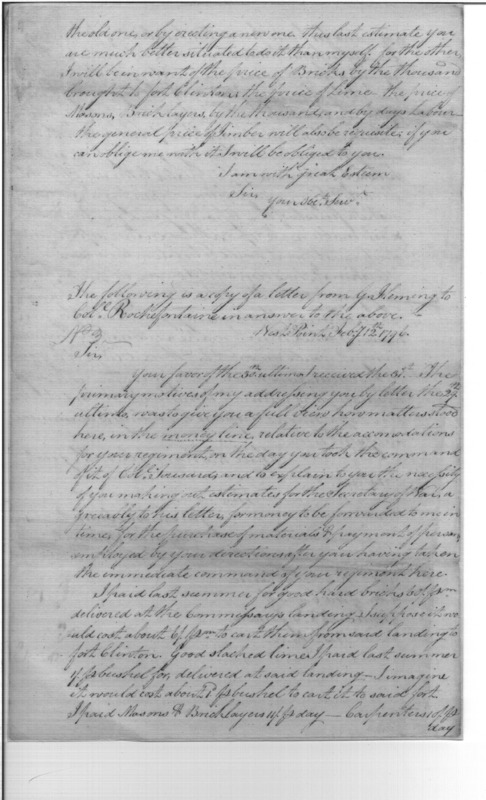 the old one, or by erecting a new one this last estimate you
are much better situated to do it than myself. for the other
I will be in want of the price of Bricks by the thousand
brought to fort Clinton, the price of Lime. the price of
Masons, Brick layers, by the thousand, and by days Labour
the general price of timber will also be requisite; if you
can oblige me with it I will be obliged to you.
I am with great Esteem
Sir,
your Obt. Serv.t
The following is a copy of a letter from G. Fleming to
Col. Rochefontaine in answer to the above.
West Point, Feb. 1796
Sir
Your favor of the ultimo I received the 31st. The
primary motives of my addressing you by letter the 29th
ultimo, was to give you a full view how matters stood
here, in the money line, relative to the accomodations
for your regiment, on the day you took the command
of it of and to explain to you the necessity
of you making out estimates for the Secretary of War, a
greeably to his letter, for money to be forwarded to me in
time, for the purchase of materials & payment of persons
employed by your directions after your having taken
the immediate command of your regiment here
I paid last summer for good hard bricks
delivered at the Commissays landing, I suppose it wo
uld cost about to cart them from said landing to
fort Clinton. Good slacked lime I paid last summer
bushel for, delivered at said landing – I imagine
it would cost about bushel to cart it to said fort
I paid Masons & Brick layers day — Carpenters
day